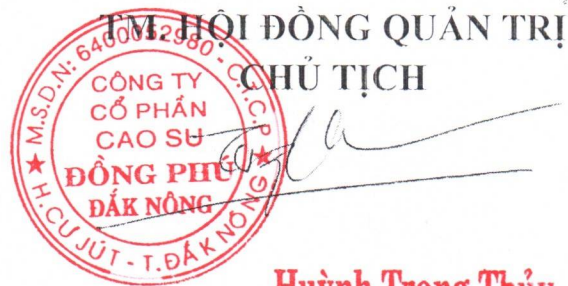 TM. HỘI ĐỒNG QUẢN TRỊ
CHỦ TỊCH
M.S.D.N: 6400052980 - C.T.C.P
CÔNG TY
CỔ PHẦN
CAO SU
ĐỒNG PHÚ
ĐẮK NÔNG
H. CƯ JÚT - T. ĐẮK NÔNG
Huỳnh Trọng Thủy